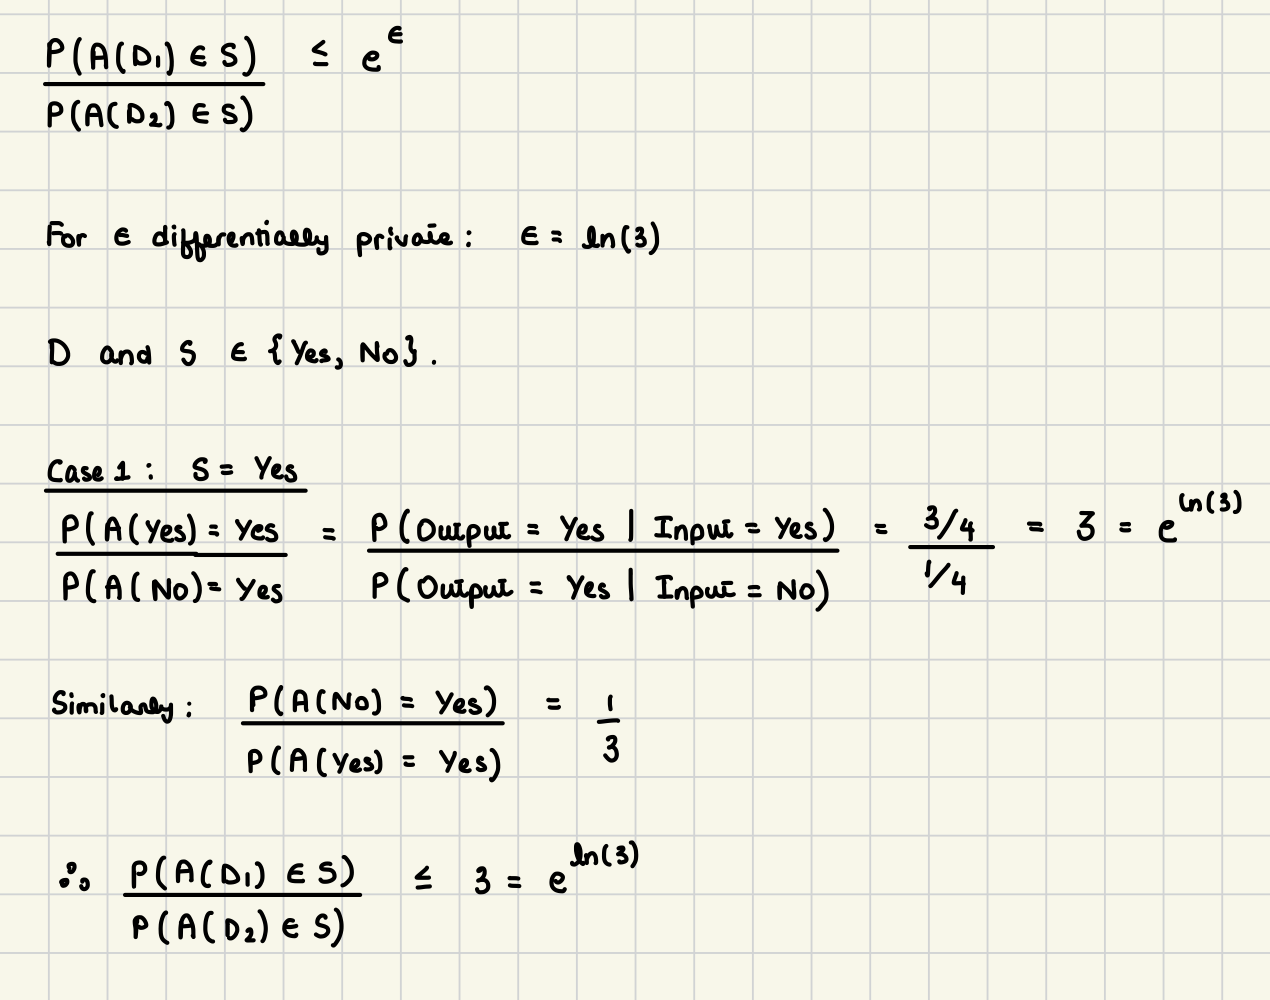 P(A(D₁) ∈ S) / P(A(D₂) ∈ S) ≤ e^ϵ
For ϵ differentially private: ϵ = ln(3)
D and S ∈ {Yes, No}.
Case 1: S = Yes
P(A(Yes) = Yes / P(A(No) = Yes = P(Output = Yes | Input = Yes) / P(Output = Yes | Input = No) = 3/4 / 1/4 = 3 = e^ln(3)
Similarly: P(A(No) = Yes) / P(A(Yes) = Yes) = 1/3
∴ P(A(D₁) ∈ S) / P(A(D₂) ∈ S) ≤ 3 = e^ln(3)